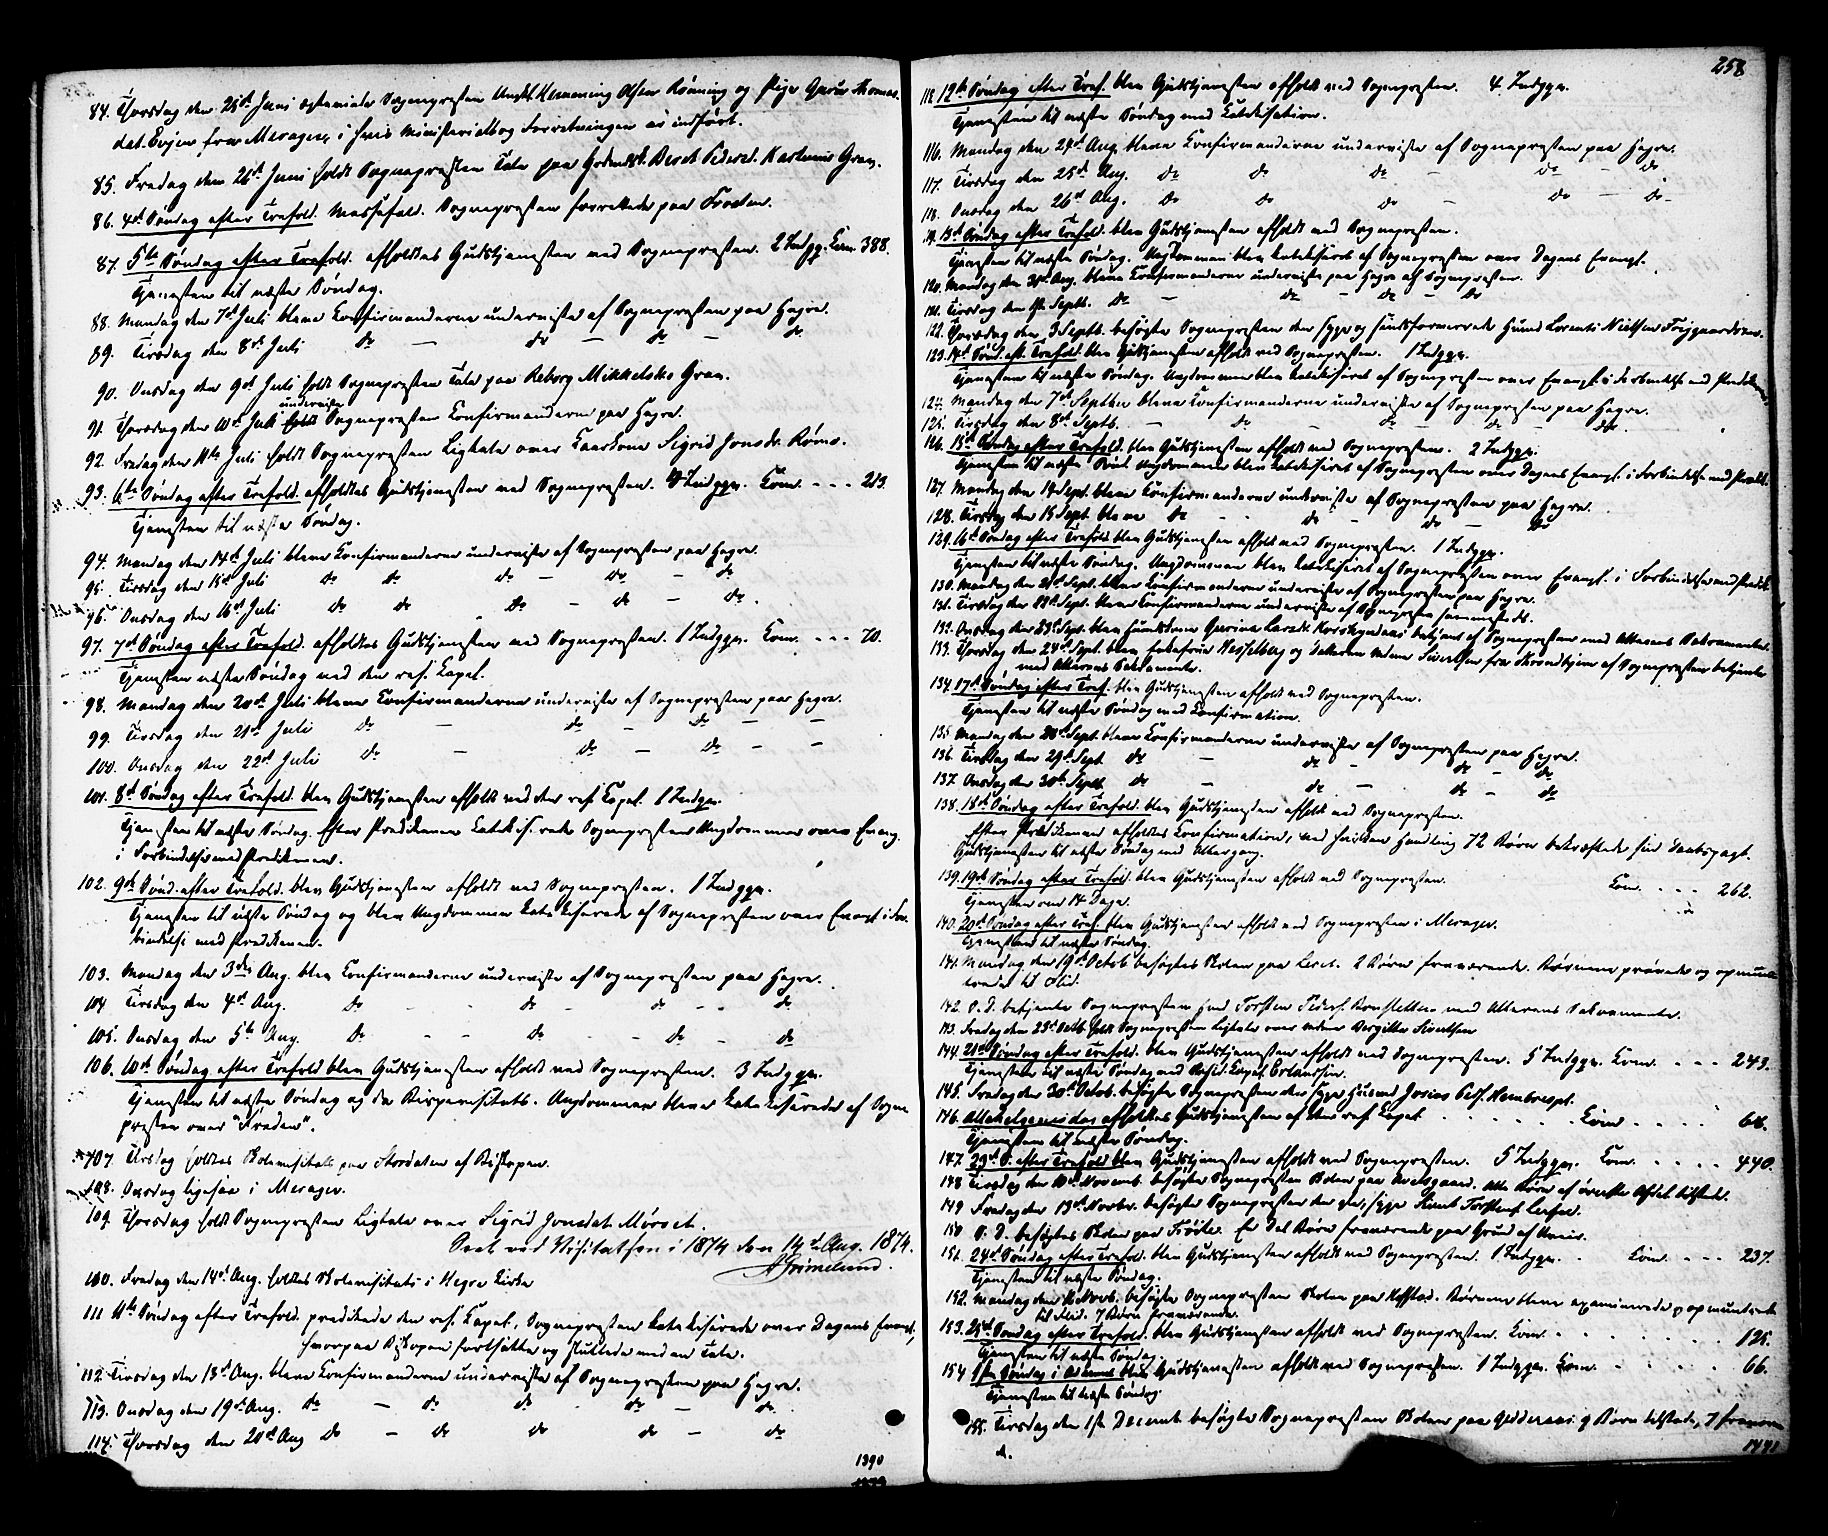 84. Thorsdag den 25de Juni ægteviede Sognepresten Ungk. Henning Olsen Rønning og Pige Guru Thomas-
dat. Evjen fra Merager, i hvis Ministerialbog Forretningen er indført.
85. Fredag den 26de Juni holdt Sognepresten Tale paa Beret Pedersd. Gran.
86. 4de Søndag efter Trefold. Messefald. Sognepresten forrettede paa Frosten.
87. 5te Søndag efter Trefold. afholdtes Gudstjenesten ved Sognepresten. 2 Indgge. Kom. 388.
Tjenesten til næste Søndag.
88. Mandag den 7de Juli bleve Konfirmanderne underviste af Sognepresten paa Hegre.
89. Tirsdag den 8de Juli do — do — do — do
90. Onsdag den 9de Juli holdt Sognepresten Tale paa Mikkelsd. Gran.
underviste
91. Thorsdag den 10de Juli holdt Sognepresten Konfirmanderne paa Hegre.
92. Fredag den 11te Juli holdt Sognepresten Ligtale over Kaarkone Sigrid Jonsdr.
93. 6te Søndag efter Trefold. afholdtes Gudstjenesten ved Sognepresten. Indgge. Kom. - - - 213.
Tjenesten til næste Søndag.
94. Mandag den 14de Juli bleve Konfirmanderne underviste af Sognepresten paa Hegre.
95. Tirsdag den 15de Juli do do do — do — do
96. Onsdag den 16de Juli do do do — do — do.
97. 7de Søndag efter Trefold. afholdtes Gudstjenesten ved Sognepresten. 1 Indgge. Kom. - - - 70.
Tjenesten næste Søndag ved den res. Kapel.
98. Mandag den 20de Juli bleve Konfirmanderne underviste af Sognepresten paa Hegre.
99. Tirsdag den 21de Juli do — do — do — —
100. Onsdag den 22de Juli do — do — do — —
101. 8de Søndag efter Trefold. blev Gudstjenesten afholdt ved den res. Kapel. 1 Indgge.
Tjenesten til næste Søndag. Efter Prædikenen katekiserede Sognepresten Ungdommen over Evang.
i Forbindelse med Prædikenen.
102. 9de Sønd. efter Trefold. blev Gudstjenesten afholdt ved Sognepresten. 1 Indgge.
Tjenesten til næste Søndag og blev Ungdommen katekiserede af Sognepresten over Evang. i For-
bindelse med Prædikenen.
103. Mandag den 3die Aug. blev Konfirmanderne underviste af Sognepresten paa Hegre.
104 Tirsdag den 4de Aug. do - do - do - - do
105. Onsdag den 5te Aug. do - - do - do - do
106. 10de Søndag efter Trefold blev Gudstjenesten afholdt ved Sognepresten. 3 Indgge.
Tjenesten til næste Søndag og da Bispevisitats. Ungdommen bleve katekiserede af Sogne
presten over "Freden".
107. Tirsdag holdtes Skolevisitats paa Stordalen af Biskopen.
108. Onsdag ligesaa i Merager.
109. Thorsdag holdt Sognepresten Ligtale over Sigrid Jonsdat.
Seet ved Visitatsen i 1874 den 14de Aug. 1874.
Grimelund.
110. Fredag den 14de Aug. holdtes Skolevisitats i Hegre Kirke
111 11te Søndag efter Trefold. prædikede den res. Kapel., Sognepresten katekiserede over Dagens Evang.,
hvorpaa Biskopen fortsatte og sluttede med en Tale.
112. Tirsdag den 18de Aug. bleve Konfirmanderne underviste af Sognepresten paa Hegre.
113. Onsdag den 19de Aug. do — do do — do — do.
114. Thorsdag den 20de Aug do — do do do — do
1390
258
12te Søndag efter Tref. blev Gudstjenesten afholdt ved Sognepresten. 4 Indgge.
Tjenesten til næste Søndag med Katekisation.
116. Mandag den 24de Aug. bleve Konfirmanderne underviste af Sognepresten paa Hegre.
117. Tirsdag den 25de Aug. do do do — do — do
118. Onsdag den 26de Aug. do do do — do — do-
119. 13de Søndag efter Trefold. blev Gudstjenesten afholdt ved Sognepresten.
Tjenesten til næste Søndag. Ungdommen blev katekiseret af Sognepresten over Dagens Evangl.
120. Mandag den 31de Aug. bleve Konfirmanderne underviste paa Hegre af Sognepresten.
121. Tirsdag den 1ste Septb. do — do — do — do
122. Thorsdag den 3 Septb. besøgte Sognepresten den syge og Husmd. Lorents Nielsen
123. 14de Sønd. eft. Trefold. blev Gudstjenesten afholdt ved Sognepresten. 1 Indgge.
Tjenesten til næste Søndag. Ungdommen blev katekiseret af Sognepresten over Evangl. i Forbindelse med Prædiken.
124. Mandag den 7de Septbr. bleve Konfirmanderne underviste af Sognepresten paa Hegre.
125. Tirsdag den 8de Septb. — do — do — do — do.
126. 15de Søndag efter Trefold. blev Gudstjenesten afholdt ved Sognepresten. 2 Indgge.
Tjenesten til næste Sønd. Ungdommen blev katekiseret af Sognepresten over Dagens Evangl. i Forbindelse med Prædik.
127. Mandag den 14 Sept. bleve Konfirmanderne underviste af Sognepresten paa Hegre.
128. Tirsdag den 15 Sept. bleve do - - do — do — do
129. 16de Søndag efter Trefold blev Gudstjenesten afholdt ved Sognepresten. 1 Indgge.
Tjenesten til næste Søndag. Ungdommen blev katekiseret af Sognepresten over Evangl. i Forbindelse med Prædik.
130. Mandag den 21de Sept. bleve Konfirmanderne underviste af Sognepresten paa Hegre.
131. Tirsdag den 22de Sept. bleve Konfirmanderne underviste af Sognepresten sammesteds.
132. Onsdag den 23de Sept. blev Huuskone Gurina Larsdr. betjent af Sognepresten med Alterens Sakramente.
133. Thorsdag den 24de Sept. blev Hesselberg og Sivertsen fra Throndhjem af Sognepresten betjente
med Alterens Sakramente.
134. 17de Søndag efter Tref. blev Gudstjenesten afholdt ved Sognepresten.
Tjenesten til næste Søndag med Confirmation.
135 Mandag den 28de Sept. bleve Konfirmanderne underviste af Sognepresten paa Hegre.
136. Tirsdag den 29de Sept. do — do — do — do
137. Onsdag den 30te Septb. do — do — do — do
138. 18de Søndag efter Trefold. blev Gudstjenesten afholdt ved Sognepresten.
Efter Prædikenen afholdtes Konfirmation, ved hvilken Handling 72 Børn bekræftede sin Daabspagt.
Gudstjenesten til næste Søndag med Altergang.
139. 19de Søndag efter Trefold. blev Gudstjenesten afholdt ved Sognepresten. Kom. - - - 262.
Tjenesten om 14 Dage.
140. 20de Søndag efter Tref. blev Gudstjenesten afholdt ved Sognepresten i Merager.
Tjenesten til næste Søndag.
141. Mandag den 19de Octob. besøgtes Skolen paa 2 Børn fraværende. Børnene prøvede og opmun-
trede til Flid.
142. S. D. betjente Sognepresten Torsten Peders. med Alterens Sakramente.
143. Fredag den 23de Octb. holdt Sognepresten Ligtale over Sivertsen
144. 21de Søndag efter Trefold. blev Gudstjenesten afholdt ved Sognepresten. 5 Indgge. Kom. - - - 243.
Tjenesten til næste Søndag ved Resid. Kapel. Erlandsen.
145. Fredag den 30te Octob. besøgte Sognepresten den syge Husmd. Josias Hembrepl.
146. Allehelgensdag afholdtes Gudstjenesten af den res. Kapel. . . . . . Kom - - - - 68.
Tjenesten til næste Søndag.
147. 23de S. efter Trefold blev Gudstjenesten afholdt ved Sognepresten. 5 Indgge. Kom. - - - - 440.
148 Tirsdag den 10de Novemb. besøgte Sognepresten Skolen paa Alle Børn af øverste Afdel. tilstede.
149 Fredag den 13de Novbr. besøgte Sognepresten den syge
150 S. D. besøgtes Skolen paa En Del Børn fraværende paa Grund af
151. 24de Søndag efter Trefold. blev Gudstjenesten afholdt ved Sognepresten. 1 Indgge. - Kom. - - - 237.
Tjenesten til næste Søndag.
152. Mandag den 16 Novb. besøgte Sognepresten Skolen paa Hofstad. Børnene bleve examinerede og opmuntrede
til Flid. 7 Børn fraværende.
153. 25de Søndag efter Trefold. blev Gudstjenesten afholdt ved Sognepresten. Kom. - . . . . . 125.
Tjenesten til næste Søndag.
154 1ste Søndag i Advent blev Gudstjenesten afholdt ved Sognepresten. 1 Indgge. Kom. - - - - 66.
Tjenesten til næste Søndag.
155. Tirsdag den 1ste Decemb. besøgte Sognepresten Skolen paa 9 Børn tilstede, 7 fraværen-
d.